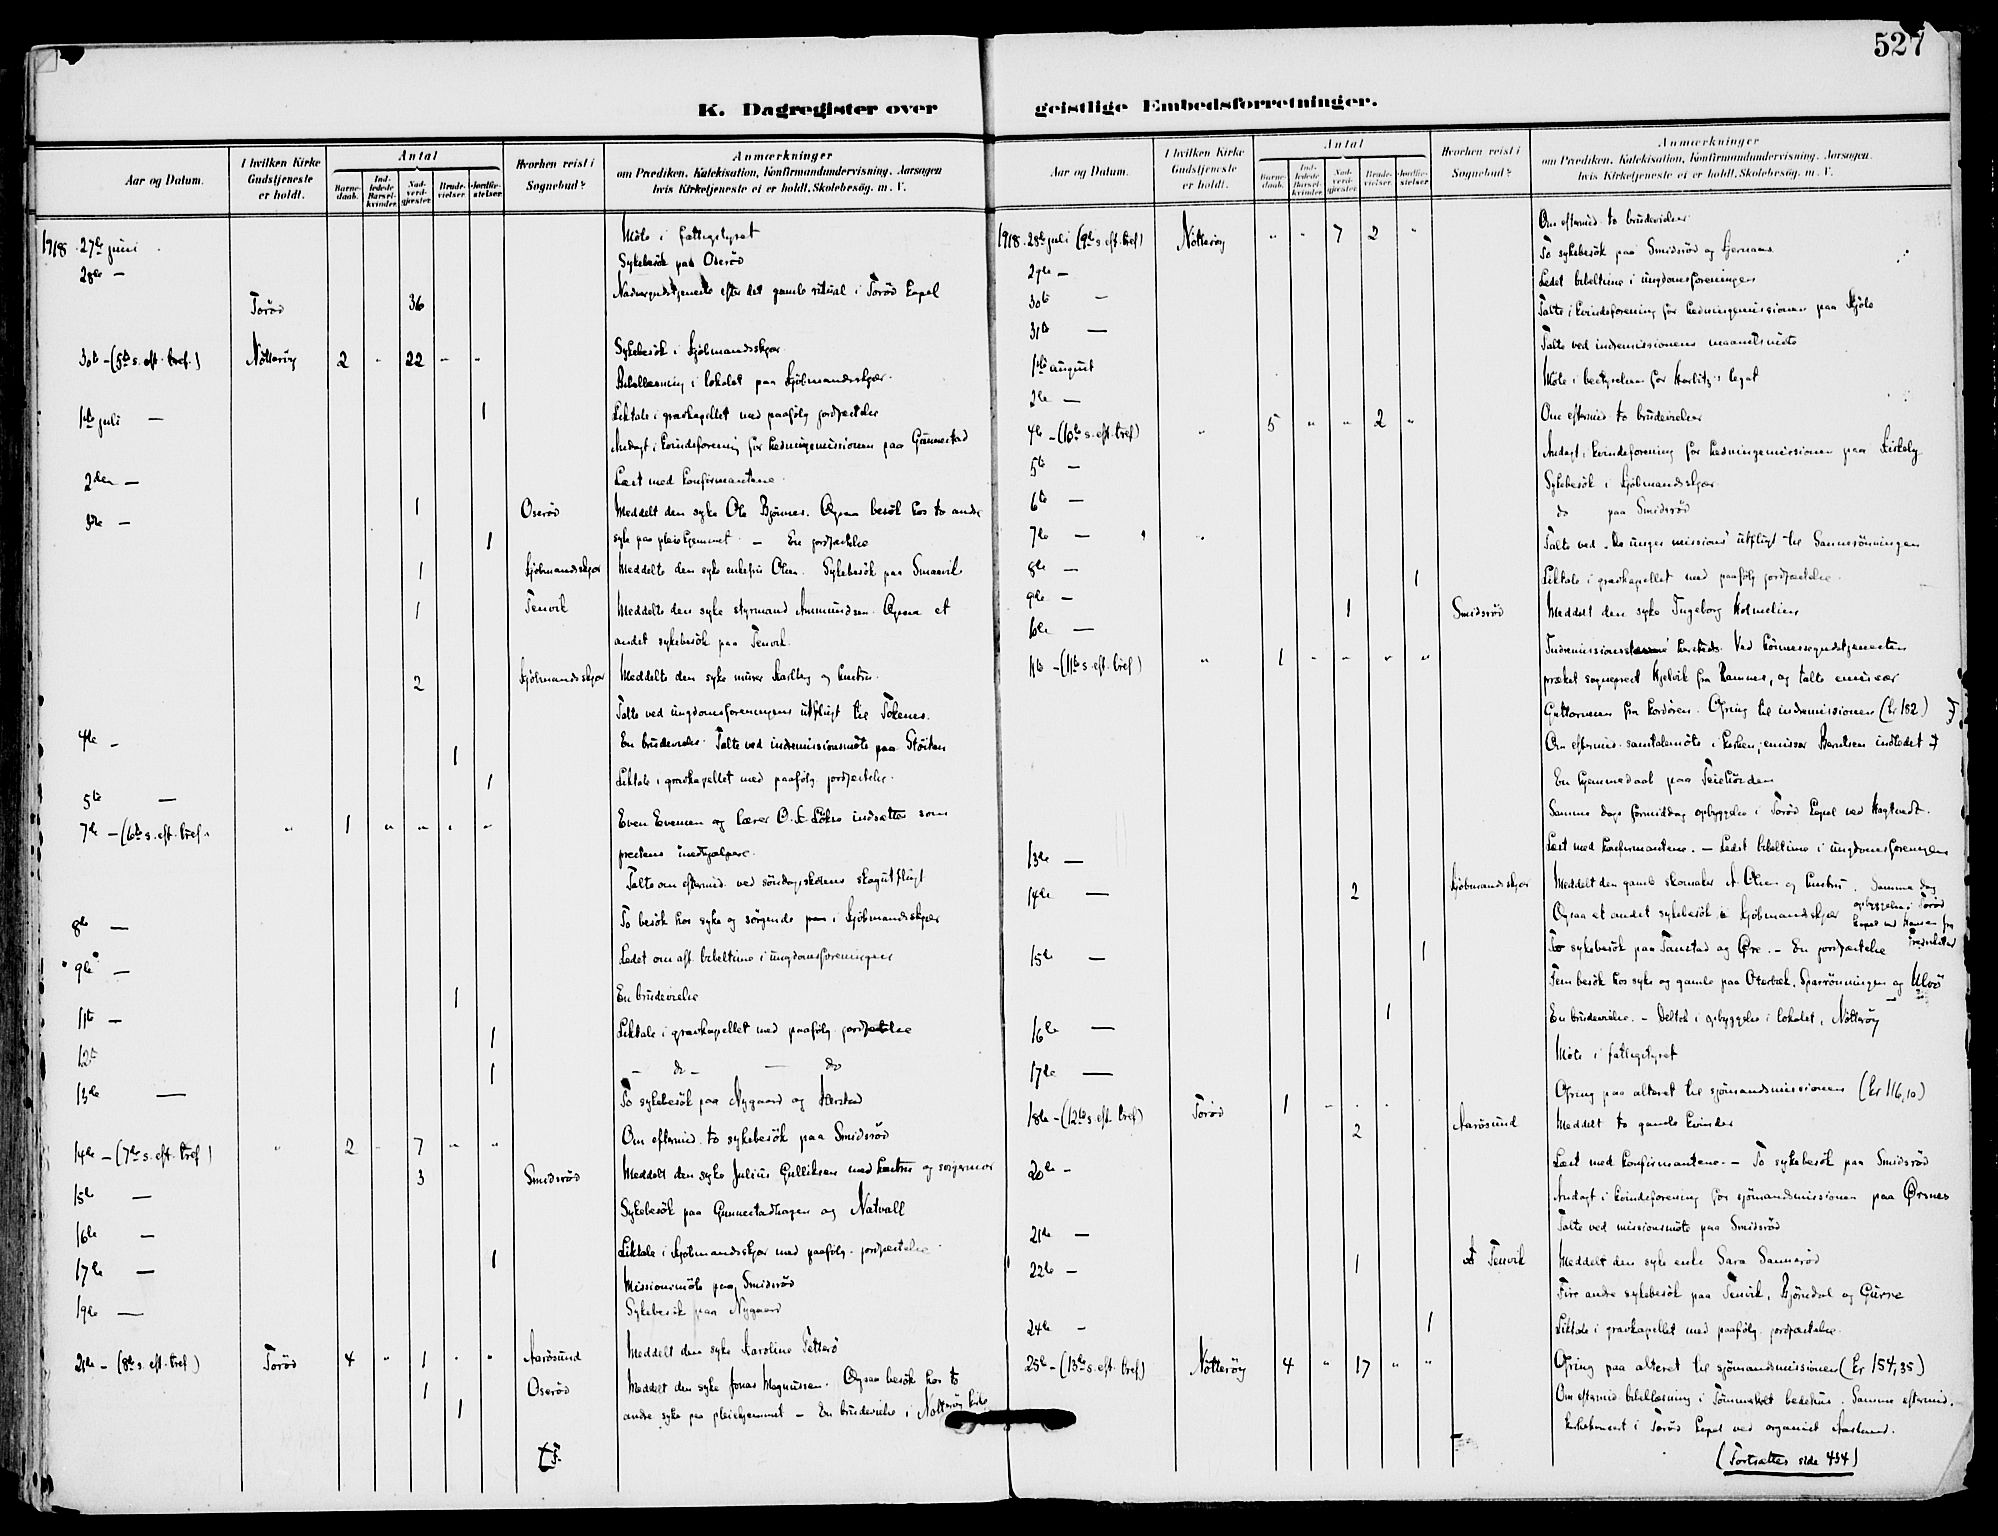 527
K. Dagregister over geistlige Embedsforretninger.
Aar og Datum.
I hvilken Kirke Gudstjeneste er holdt.
Antal
Barne-daab.
Ind-ledede Barsel-kvinder.
Nad-verd-gjester.
Brude-vielser.
Jordfæ-stelser.
Hvorhen reist i Sognebud?
Anmærkninger
om Prædiken, Katekisation, Konfirmandundervisning, Aarsagen
hvis Kirketjeneste ei er holdt, Skolebesøg. m. V.
1918. 27de juni Möte i fattigstyret
28de — Sykebesök paa Oseröd
Toröd 36 Nadvergudstjeneste efter det gamle ritual i Toröd Kapel
30te - (5te s. eft. tref.) Nötteröy 2 " 22 " " Sykebesök i Kjöbmandsskjær
Bibellæsning i lokalet paa Kjöbmandsskjær.
1ste juli — 1 Liktale i gravkapellet med paafölg. jordfæstelse
Andagt i kvindeforening for hedningemissionen paa Gunnestad
2den — Læst med konfirmantene
3die — 1 Oseröd Meddelt den syke Ole Bjönnes. Ogsaa besök hos to andre
1 syke paa pleiehjemmet. — En jordfæstelse
1 Kjöbmandsskjær Meddelte den syke enkefru Olsen. Sykebesök paa Smaavik
1 Tenvik Meddelte den syke styrmand Ammundsen. Ogsaa et
andet sykebesök paa Tenvik.
2 Kjöbmandsskjær Meddelte den syke murer Karlberg og hustru.
Talte ved ungdomsforeningens utflugt til Tokenes.
4de — 1 En brudevielse. Talte ved indremissionsmöte paa Stöiten
5te — 1 Liktale i gravkapellet med paafölg. jordfæstelse.
7de - (6te s. eft. tref. " 1 " " " " Even Evensen og lærer O. Lökse indsættes som
prestens medhjælpere.
Talte om eftermid. ved söndagsskolens skogutflugt
8de — To besök hos syke og sörgende i Kjöbmandsskjær
9de — Ledet om aft. bibeltime i ungdomsforeningen
11te — 1 En brudevielse
12te 1 Liktale i gravkapellet med paafölg. jordfæstelse
13de — 1 — do — — do
To sykebesök paa Nygaard og Herstad
14de - (7de s. eft. tref.) " 2 " 7 " " Om eftermid. to sykebesök paa Smidsröd
15de — 3 Smidsröd Meddelt den syke Julius Gulliksen med hustru og svigermor
16de — Sykebesök paa Gunnestadhagen og Natvall
17de — 1 Liktale i Kjöbmandsskjær med paafölg. jordfæstelse
Missionsmöte paa Smidsröd
19de — Sykebesök paa Nygaard
21de - (8de s. eft. tref.) Toröd 4 " 1 " " Aarösund Meddelt den syke Karoline Petterö
1 Oseröd Meddelt den syke Jonas Magnussen. Ogsaa besök hos to
1 andre syke paa pleiehjemmet — En brudevielse i Nötteröy kirke
Aar og Datum.
I hvilken Kirke Gudstjeneste er holdt.
Antal
Barne-daab.
Ind-ledede Barsel-kvinder.
Nad-verd-gjester.
Brude-vielser.
Jordfæ-stelser.
Hvorhen reist i Sognebud?
Anmærkninger
om Prædiken, Katekisation, Konfirmandundervisning, Aarsagen
hvis Kirketjeneste ei er holdt, Skolebesøg. m. V.
1918. 28de juli (9de s. eft. tref) Nötteröy " " 7 2 " Om eftermid. to brudevielser
To sykebesök paa Smidsröd og Hernaes
29de — Ledet bibeltime i ungdomsforeningen
30te — Talte i kvindeforening for hedningemissionen paa Skjöle
31te — Talte ved indremissionens maanedsmöte
1ste august Möte i bestyrelsen for Harlitz's legat
2den —
4de - (10de s. eft. tref) " 5 " " 2 " Om eftermid. to brudevielser
5te — Andagt i kvindeforening for hedningemissionen paa Kirkeby
6te — Sykebesök i Kjöbmandsskjær
7de — do paa Smidsröd
Talte ved "De unges missions" utflugt til Sannerönningen
8de — 1 Liktale i gravkapellet med paafölg. jordfæstelse.
9de — 1 Smidsröd Meddelt den syke Ingeborg Holmelien
10de —
11te - (11te s. eft. tref) " 1 " " " " Ved hörmessegudstjenesten
præket sogneprest Kjelvik fra Ramnes, og talte emissær
Guttormsen fra Hordöen. Ofring til indremissionen (kr 182)
Om eftermid. samtalemöte i kirken; emissær Berntsen indledet
En hjemmedaab paa Teiehöiden
Samme dags formiddag opbyggelse i Toröd kapel ved Hagtvedt.
13de — Læst med konfirmantene. — Ledet bibeltime i ungdomsforeningen
14de — 2 Kjöbmandsskjær Meddelt den gamle skomaker A. Olsen og hustru. Samme dag
Ogsaa et andet sykebesök i Kjöbmandsskjær opbyggelse i Toröd
kapel ved Hansen fra
15de — 1 To sykebesök paa Tanstad og Öre. — En jordfæstelse Fredrikstad
Fem besök hos syke og gamle paa Oterbæk, Sparrönningen og Ulvö
16de — 1 En brudevielse. — Deltok i opbyggelse i lokalet, Nötteröy
17de — Möte i fattigstyret
Ofring paa alteret til sjömandsmissionen (kr 116,10)
18de - (12te s. eft. tref) Toröd 1 " " " "
2 Aarösund Meddelt to gamle kvinder
20de - Læst med konfirmantene. — To sykebesök paa Smidsröd
Andagt i kvindeforening for sjömandsmissionen paa Örsnes
21de — Talte ved missionsmöte paa Smidsröd
22de — 1 Tenvik Meddelt den syke enke Sara Sanneröd
Fire andre sykebesök paa Tenvik, Bjönndal og Gurre
24de — 1 Liktale i gravkapellet med paafölg. jordfæstelse.
25de - (13de s. eft. tref) Nötteröy 4 " 17 " " Ofring paa alteret til sjömandsmissionen (kr 154,35)
Om eftermid. bibellæsning i Tömmeholt bedehus. Samme eftermid.
kirkekonsert i Toröd kapel ved organist Aaslund.
(Fortsættes side 434)